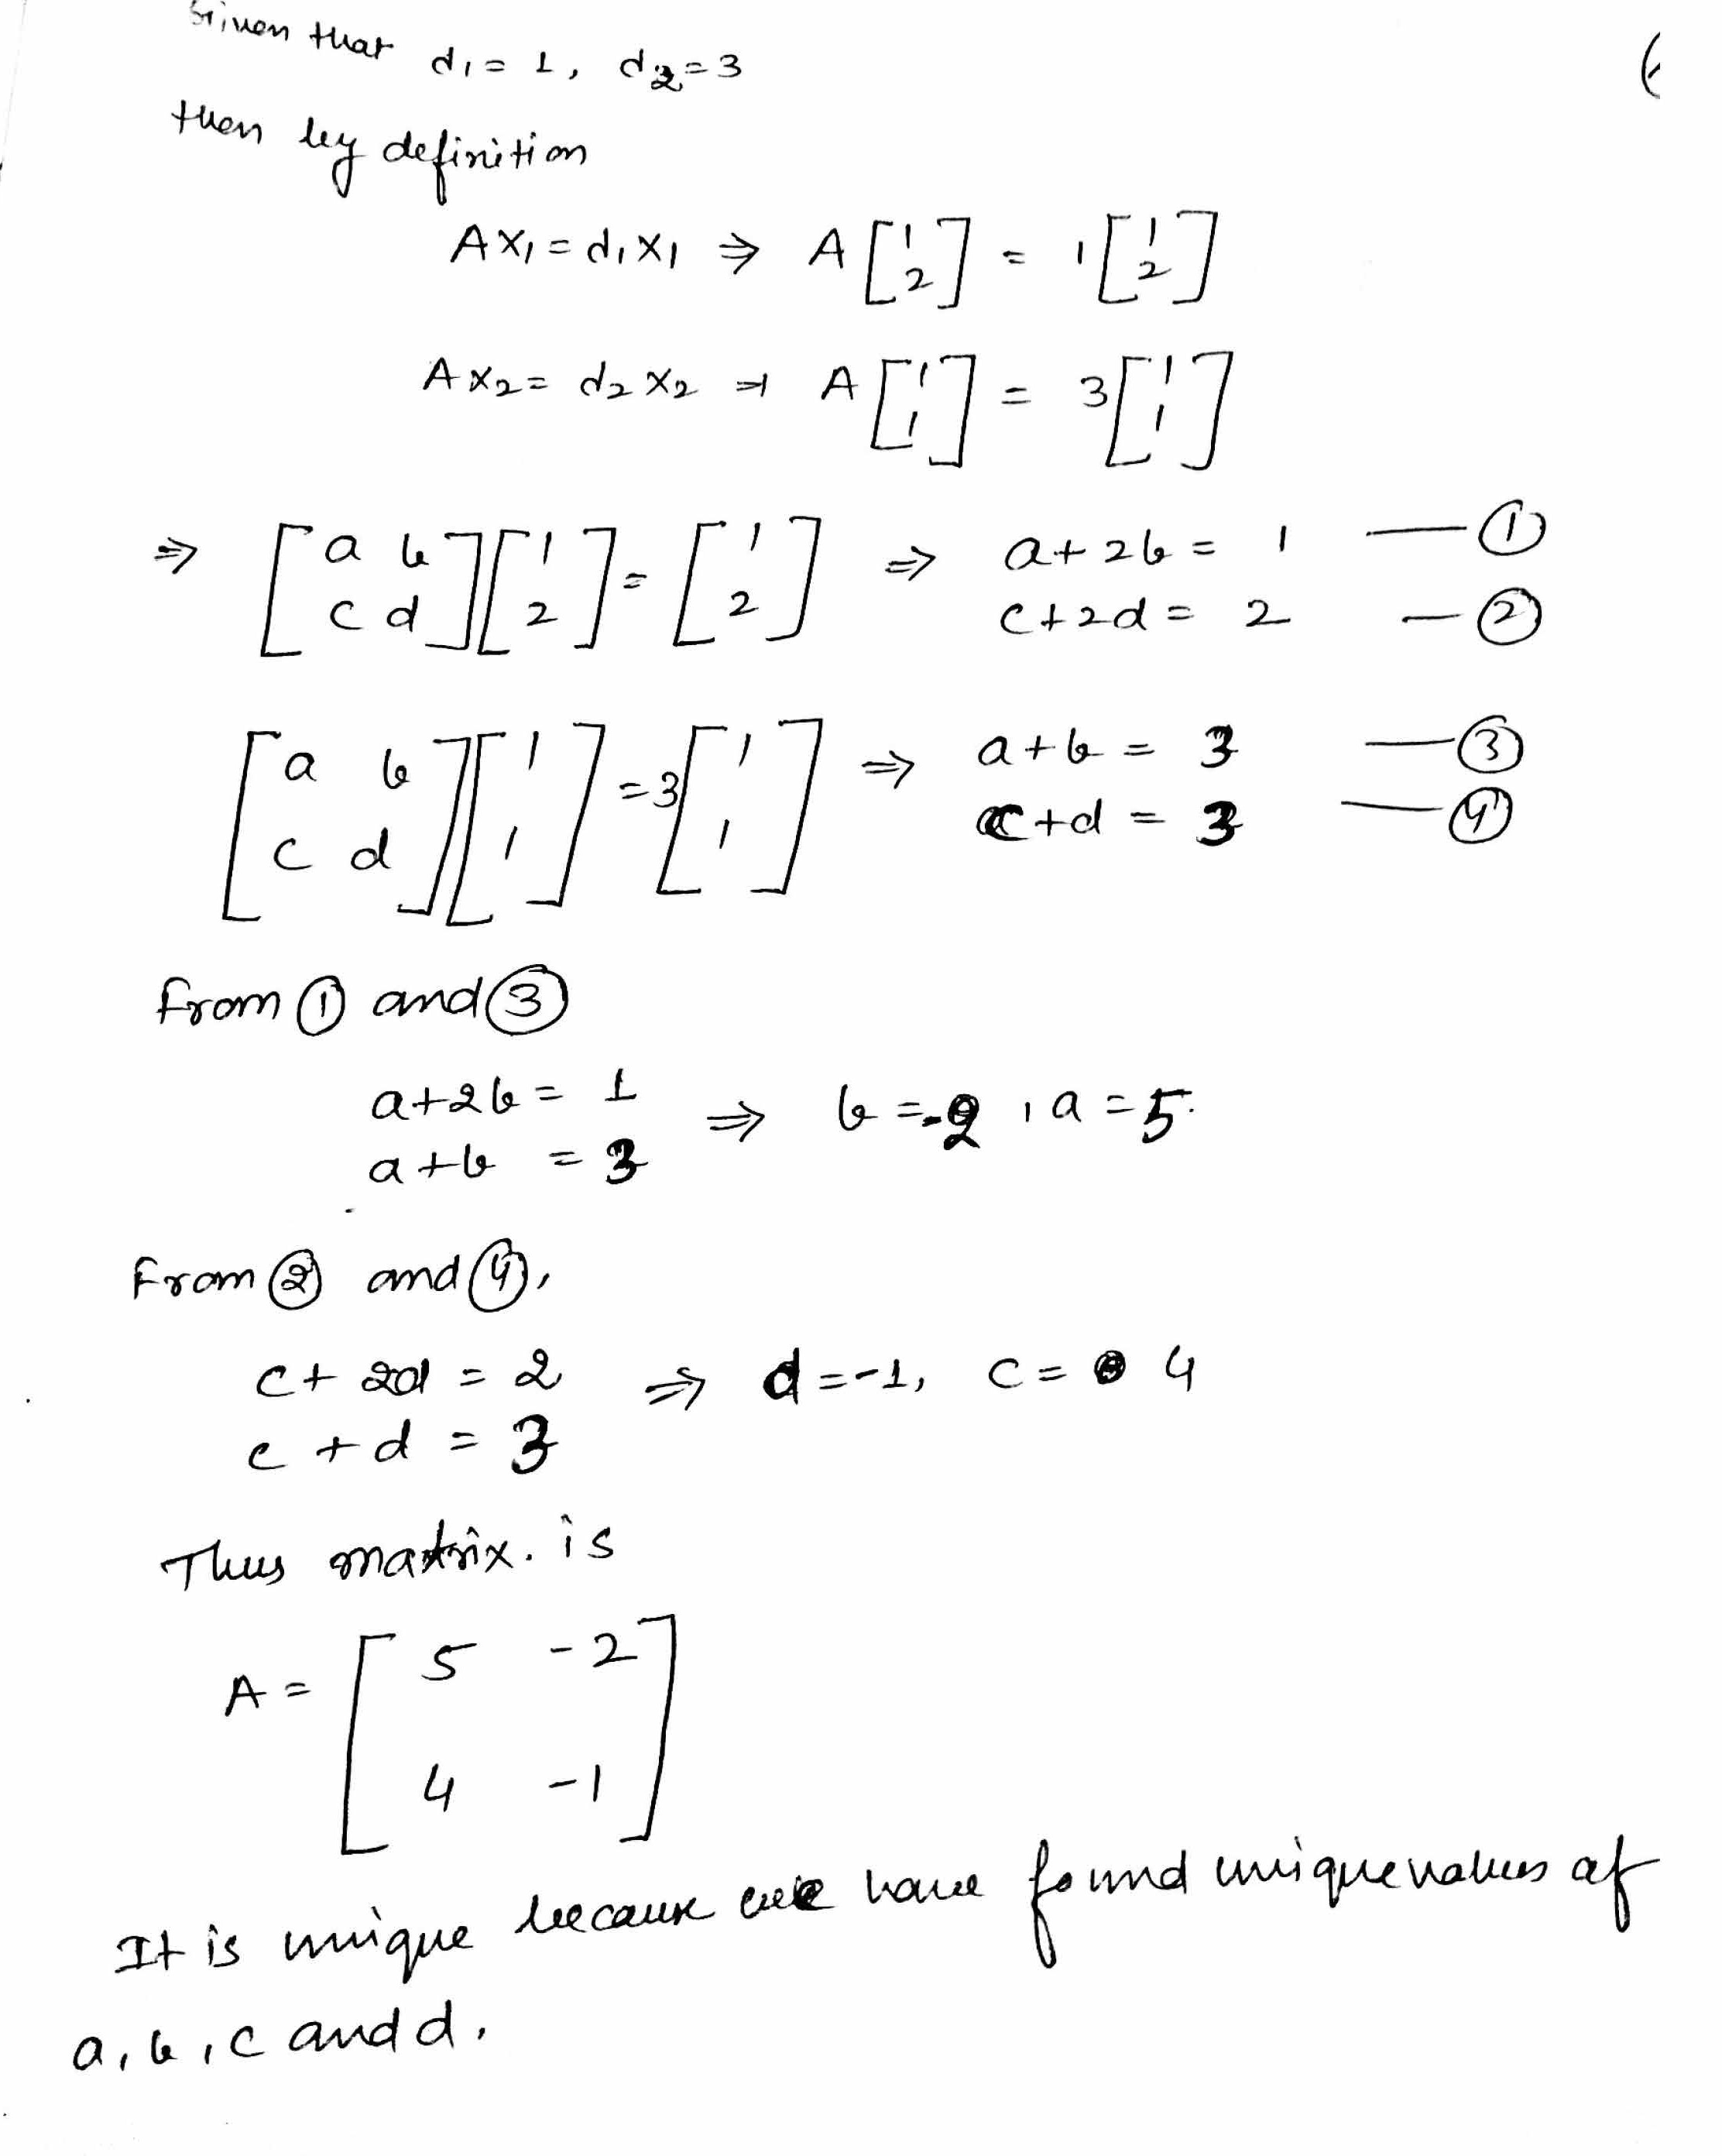 Given that d₁ = 1, d₂ = 3
then by definition
AX₁ = d₁X₁ ⇒ A [1 2] = 1 [1 2]
AX₂ = d₂X₂ ⇒ A [1 1] = 3 [1 1]
⇒ [a b c d] [1 2] = [1 2] ⇒ a + 2b = 1 — ①
c + 2d = 2 — ②
[a b c d] [1 1] = 3 [1 1] ⇒ a + b = 3 — ③
c + d = 3 — ④
From ① and ③
a + 2b = 1 ⇒ b = -2, a = 5.
a + b = 3
From ② and ④,
c + 2d = 2 ⇒ d = -1, c = 4
c + d = 3
Thus matrix. is
A = [5 -2
4 -1]
It is unique because we have found unique values of
a, b, c and d.